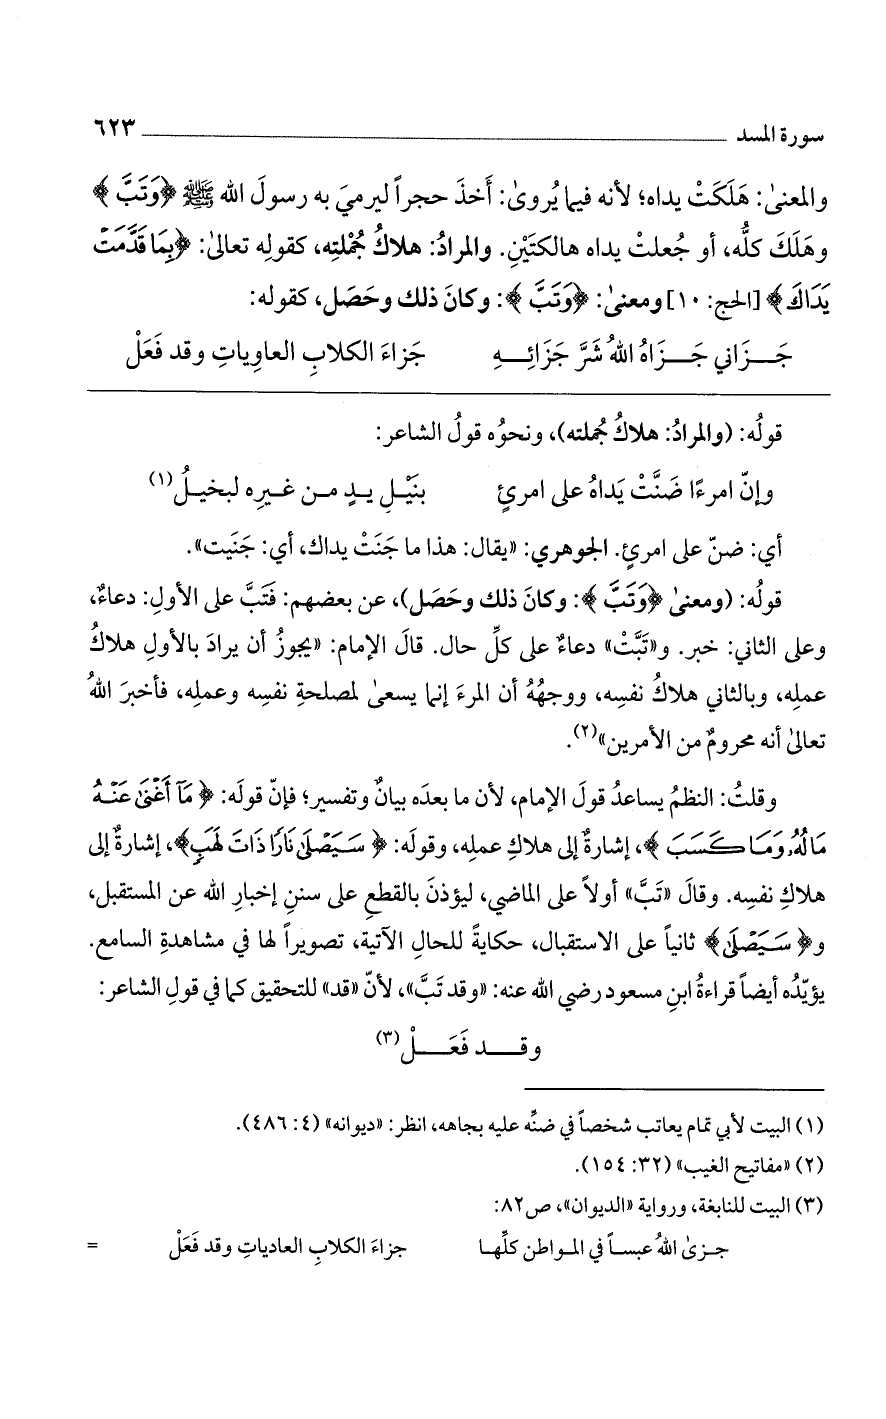 سورة المسد ٦٢٣
والمعنىٰ: هَلَكَتْ يداه؛ لأنه فيما يُروىٰ: أَخذَ حجراً ليرميَ به رسولَ الله ﷺ ﴿وَتَبَّ﴾
وهَلَكَ كلُّه، أو جُعلتْ يداه هالكتَيْنِ. والمرادُ: هلاكُ جُمْلتِه، كقولِه تعالىٰ: ﴿بِمَا قَدَّمَتْ
يَدَاكَ﴾ [الحج: ١٠] ومعنىٰ: ﴿وَتَبَّ﴾: وكانَ ذلك وحَصَل، كقوله:
جَـــزَاني جَـــزَاهُ اللهُ شَرَّ جَزَائِـــهِ جَزاءَ الكلابِ العاوِياتِ وقد فَعَلْ
قولُه: (والمرادُ: هلاكُ جُملته)، ونحوُه قولُ الشاعر:
وإنّ امرءًا ضَنَّتْ يَداهُ على امرئٍ بنَيْلِ يـدٍ مـن غـيرِه لبخيلُ(١)
أي: ضنّ على امرئٍ. الجوهري: «يقال: هذا ما جَنَتْ يداك، أي: جَنَيت».
قولُه: (ومعنىٰ ﴿وَتَبَّ﴾: وكانَ ذلك وحَصَل)، عن بعضهم: فَتَبَّ على الأولِ: دعاءٌ،
وعلى الثاني: خبر. و«تَبَّتْ» دعاءٌ على كلِّ حال. قالَ الإمام: «يجوزُ أن يرادَ بالأولِ هلاكُ
عملِه، وبالثاني هلاكُ نفسِه، ووجهُهُ أن المرءَ إنما يسعىٰ لمصلحةِ نفسِه وعملِه، فأخبرَ اللهُ
تعالىٰ أنه محرومٌ من الأمرين»(٢).
وقلتُ: النظمُ يساعدُ قولَ الإمام، لأن ما بعدَه بيانٌ وتفسير؛ فإنّ قولَه: ﴿مَآ أَغْنَىٰ عَنْهُ
مَالُهُۥ وَمَا كَسَبَ﴾، إشارةٌ إلى هلاكِ عملِه، وقولَه: ﴿سَيَصْلَىٰ نَارًا ذَاتَ لَهَبٍ﴾، إشارةٌ إلى
هلاكِ نفسِه. وقالَ «تَبَّ» أولاً على الماضي، ليؤذنَ بالقطعِ على سننِ إخبارِ الله عن المستقبل،
و﴿سَيَصْلَىٰ﴾ ثانياً على الاستقبال، حكايةً للحالِ الآتية، تصويراً لها في مشاهدةِ السامع.
يؤيّدُه أيضاً قراءةُ ابنِ مسعود رضي الله عنه: «وقد تَبَّ»، لأنّ «قد» للتحقيق كما في قولِ الشاعر:
وقـــد فَعَـــلْ(٣)
(١) البيت لأبي تمام يعاتب شخصاً في ضنِّه عليه بجاهه، انظر: «ديوانه» (٤: ٤٨٦).
(٢) «مفاتيح الغيب» (٣٢: ١٥٤).
(٣) البيت للنابغة، ورواية «الديوان»، ص٨٢:
جـزىٰ اللهُ عبسـاً في المـواطن كلِّهـا جزاءَ الكلابِ العادياتِ وقد فَعَلْ =